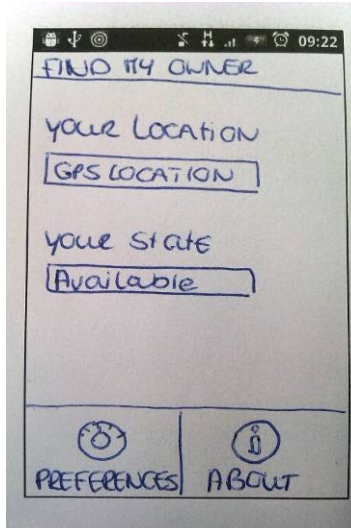 09:22
FIND MY OWNER
YOUR LOCATION
GPS LOCATION
YOUR StatE
Available
PREFERENCES
ABOUT